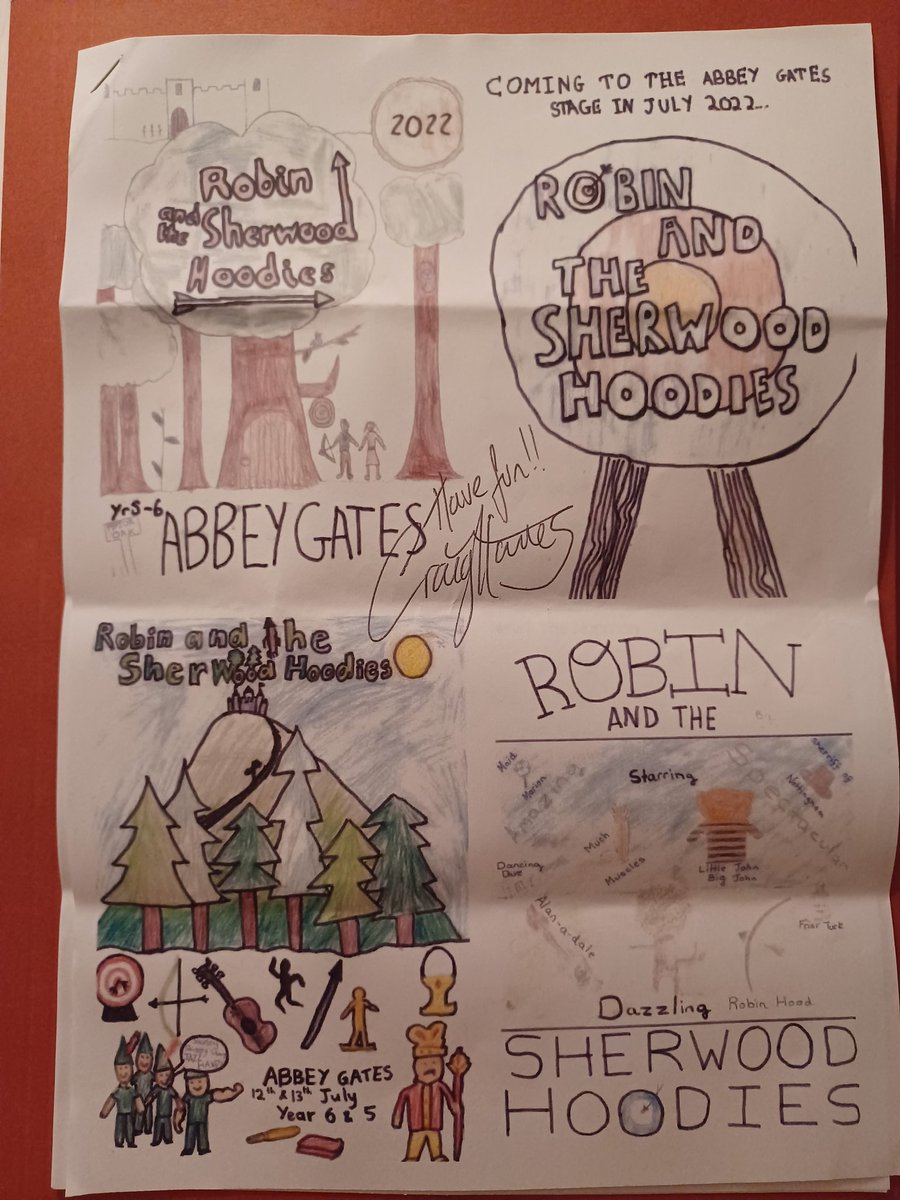 2022
Robin
and the Sherwood
Hoodies
Yr5-6
ABBEY GATES
COMING TO THE ABBEY GATES
STAGE IN JULY 2022...
ROBIN
AND
THE
SHERWOOD
HOODIES
Have fun!!
Craig Hawes
Robin and the
Sherwood Hoodies
ABBEY GATES
12th & 13th July
Year 6 & 5
ROBIN
AND THE
By
Starring
Maid
Marian
Amazing
Spectacular
Sheriff of
Nottingham
Much
Muscles
Little John
Big John
Dancing
Dave
Alan-a-dale
Friar Tuck
Dazzling
Robin Hood
SHERWOOD
HOODIES